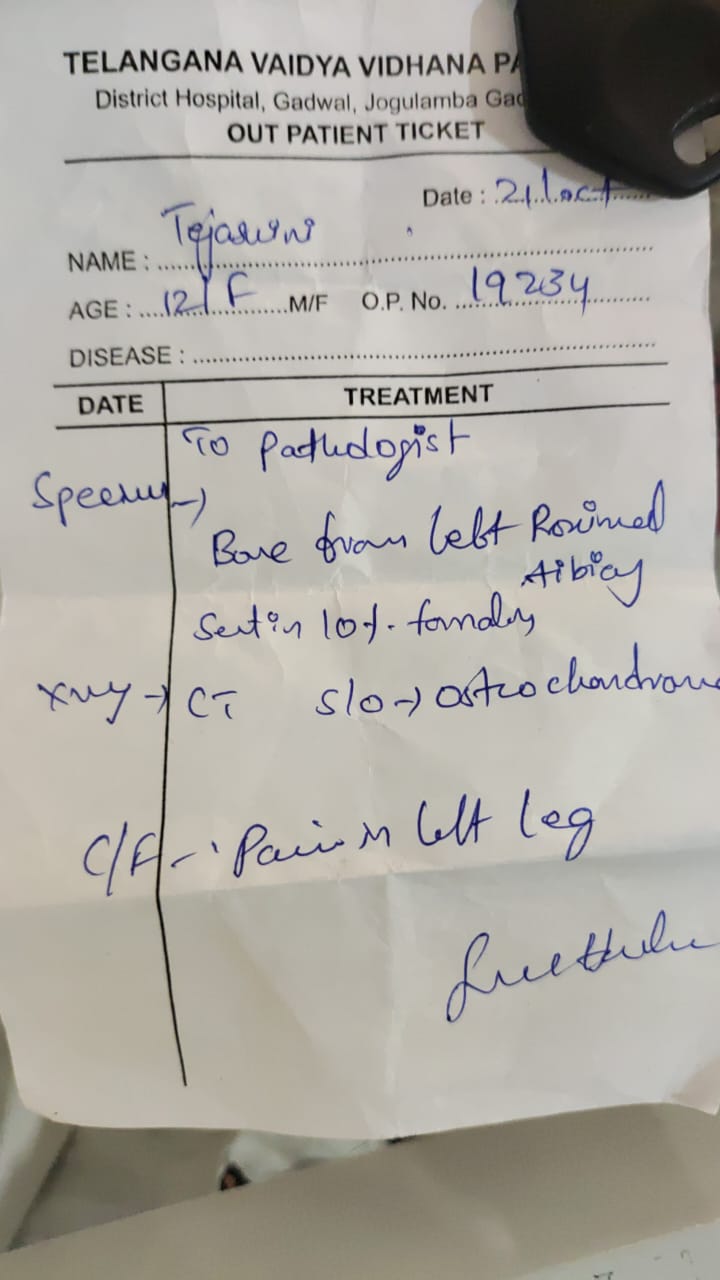 TELANGANA VAIDYA VIDHANA PA
District Hospital, Gadwal, Jogulamba Gad
OUT PATIENT TICKET
Date : 21/oct
NAME : Tejaswini
AGE : 12/F M/F O.P. No. 19234
DISEASE :
DATE TREATMENT
To Pathologist
Bone from left Proximal
tibia
Sent in 10%
Xray → CT S/o → Osteochondroma
C/F - Pain in left leg